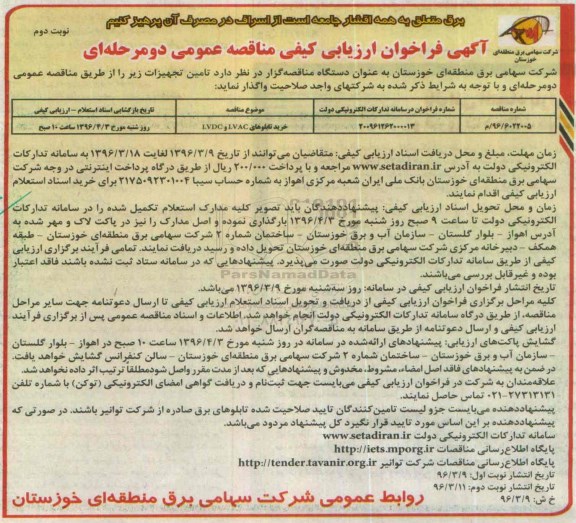 برق متعلق به همه اقشار جامعه است از اسراف در مصرف آن پرهیز کنیم
نوبت دوم
آگهی فراخوان ارزیابی کیفی مناقصه عمومی دومرحله‌ای
شرکت سهامی برق منطقه‌ای خوزستان
شرکت سهامی برق منطقه‌ای خوزستان به عنوان دستگاه مناقصه‌گزار در نظر دارد تامین تجهیزات زیر را از طریق مناقصه عمومی
دومرحله‌ای و با توجه به شرایط ذکر شده به شرکتهای واجد صلاحیت واگذار نماید:
شماره مناقصه | شماره فراخوان درسامانه تدارکات الکترونیکی دولت | موضوع مناقصه | تاریخ بازگشایی اسناد استعلام – ارزیابی کیفی
۹۶/۶۰۲۲۰۰۵/م | ۲۰۰۹۶۱۲۶۲۰۰۰۰۱۳ | خرید تابلوهای LVAC و LVDC | روز شنبه مورخ ۱۳۹۶/۴/۳ ساعت ۱۰ صبح
زمان مهلت، مبلغ و محل دریافت اسناد ارزیابی کیفی: متقاضیان می‌توانند از تاریخ ۱۳۹۶/۳/۹ لغایت ۱۳۹۶/۳/۱۸ به سامانه تدارکات
الکترونیکی دولت به آدرس www.setadiran.ir مراجعه و با پرداخت ۲۰۰/۰۰۰ ریال از طریق درگاه پرداخت اینترنتی در وجه شرکت
سهامی برق منطقه‌ای خوزستان بانک ملی ایران شعبه مرکزی اهواز به شماره حساب سیبا ۲۱۷۵۰۹۲۳۰۱۰۰۴ برای خرید اسناد استعلام
ارزیابی کیفی اقدام نمایند.
زمان و محل تحویل اسناد ارزیابی کیفی: پیشنهاددهندگان باید تصویر کلیه مدارک استعلام تکمیل شده را در سامانه تدارکات
الکترونیکی دولت تا ساعت ۹ صبح روز شنبه مورخ ۱۳۹۶/۴/۳ بارگذاری نموده و اصل مدارک را نیز در پاکت لاک و مهر شده به
آدرس اهواز – بلوار گلستان – سازمان آب و برق خوزستان – ساختمان شماره ۲ شرکت سهامی برق منطقه‌ای خوزستان – طبقه
همکف – دبیرخانه مرکزی شرکت سهامی برق منطقه‌ای خوزستان تحویل داده و رسید دریافت نمایند. تمامی فرآیند برگزاری ارزیابی
کیفی از طریق سامانه تدارکات الکترونیکی دولت صورت می‌پذیرد. پیشنهادهایی که در سامانه ستاد ثبت نشده باشند فاقد اعتبار
بوده و غیرقابل بررسی می‌باشند.
ParsNamadData
تاریخ انتشار فراخوان ارزیابی کیفی در سامانه: روز سه‌شنبه مورخ ۱۳۹۶/۳/۹ می‌باشد.
کلیه مراحل برگزاری فراخوان ارزیابی کیفی از دریافت و تحویل اسناد استعلام ارزیابی کیفی تا ارسال دعوتنامه جهت سایر مراحل
مناقصه، از طریق درگاه سامانه تدارکات الکترونیکی دولت انجام خواهد شد. اطلاعات و اسناد مناقصه عمومی پس از برگزاری فرآیند
ارزیابی کیفی و ارسال دعوتنامه از طریق سامانه به مناقصه‌گران ارسال خواهد شد.
گشایش پاکت‌های ارزیابی: پیشنهادهای ارائه‌شده در سامانه در روز شنبه مورخ ۱۳۹۶/۴/۳ ساعت ۱۰ صبح در اهواز – بلوار گلستان
– سازمان آب و برق خوزستان – ساختمان شماره ۲ شرکت سهامی برق منطقه‌ای خوزستان – سالن کنفرانس گشایش خواهد یافت.
در ضمن به پیشنهادهای فاقد اصل امضاء، مشروط، مخدوش و پیشنهادهایی که بعد از مدت مقرر واصل شود مطلقا ترتیب اثر داده نخواهد شد.
علاقه‌مندان به شرکت در فراخوان ارزیابی کیفی می‌بایست جهت ثبت‌نام و دریافت گواهی امضای الکترونیکی (توکن) با شماره تلفن
۰۲۱-۲۷۳۱۳۱۳۱ تماس حاصل نمایند.
پیشنهاددهنده می‌بایست جزو لیست تامین‌کنندگان تایید صلاحیت شده تابلوهای برق صادره از شرکت توانیر باشند. در صورتی که
پیشنهاددهنده بر این اساس مورد تایید قرار نگیرد کل پیشنهاد مردود می‌باشد.
سامانه تدارکات الکترونیکی دولت www.setadiran.ir
پایگاه اطلاع‌رسانی مناقصات http://iets.mporg.ir
پایگاه اطلاع‌رسانی مناقصات شرکت توانیر http://tender.tavanir.org.ir
تاریخ انتشار نوبت اول: ۹۶/۳/۹
تاریخ انتشار نوبت دوم: ۹۶/۳/۱۱
خ ش: ۹۶/۳/۹
روابط عمومی شرکت سهامی برق منطقه‌ای خوزستان